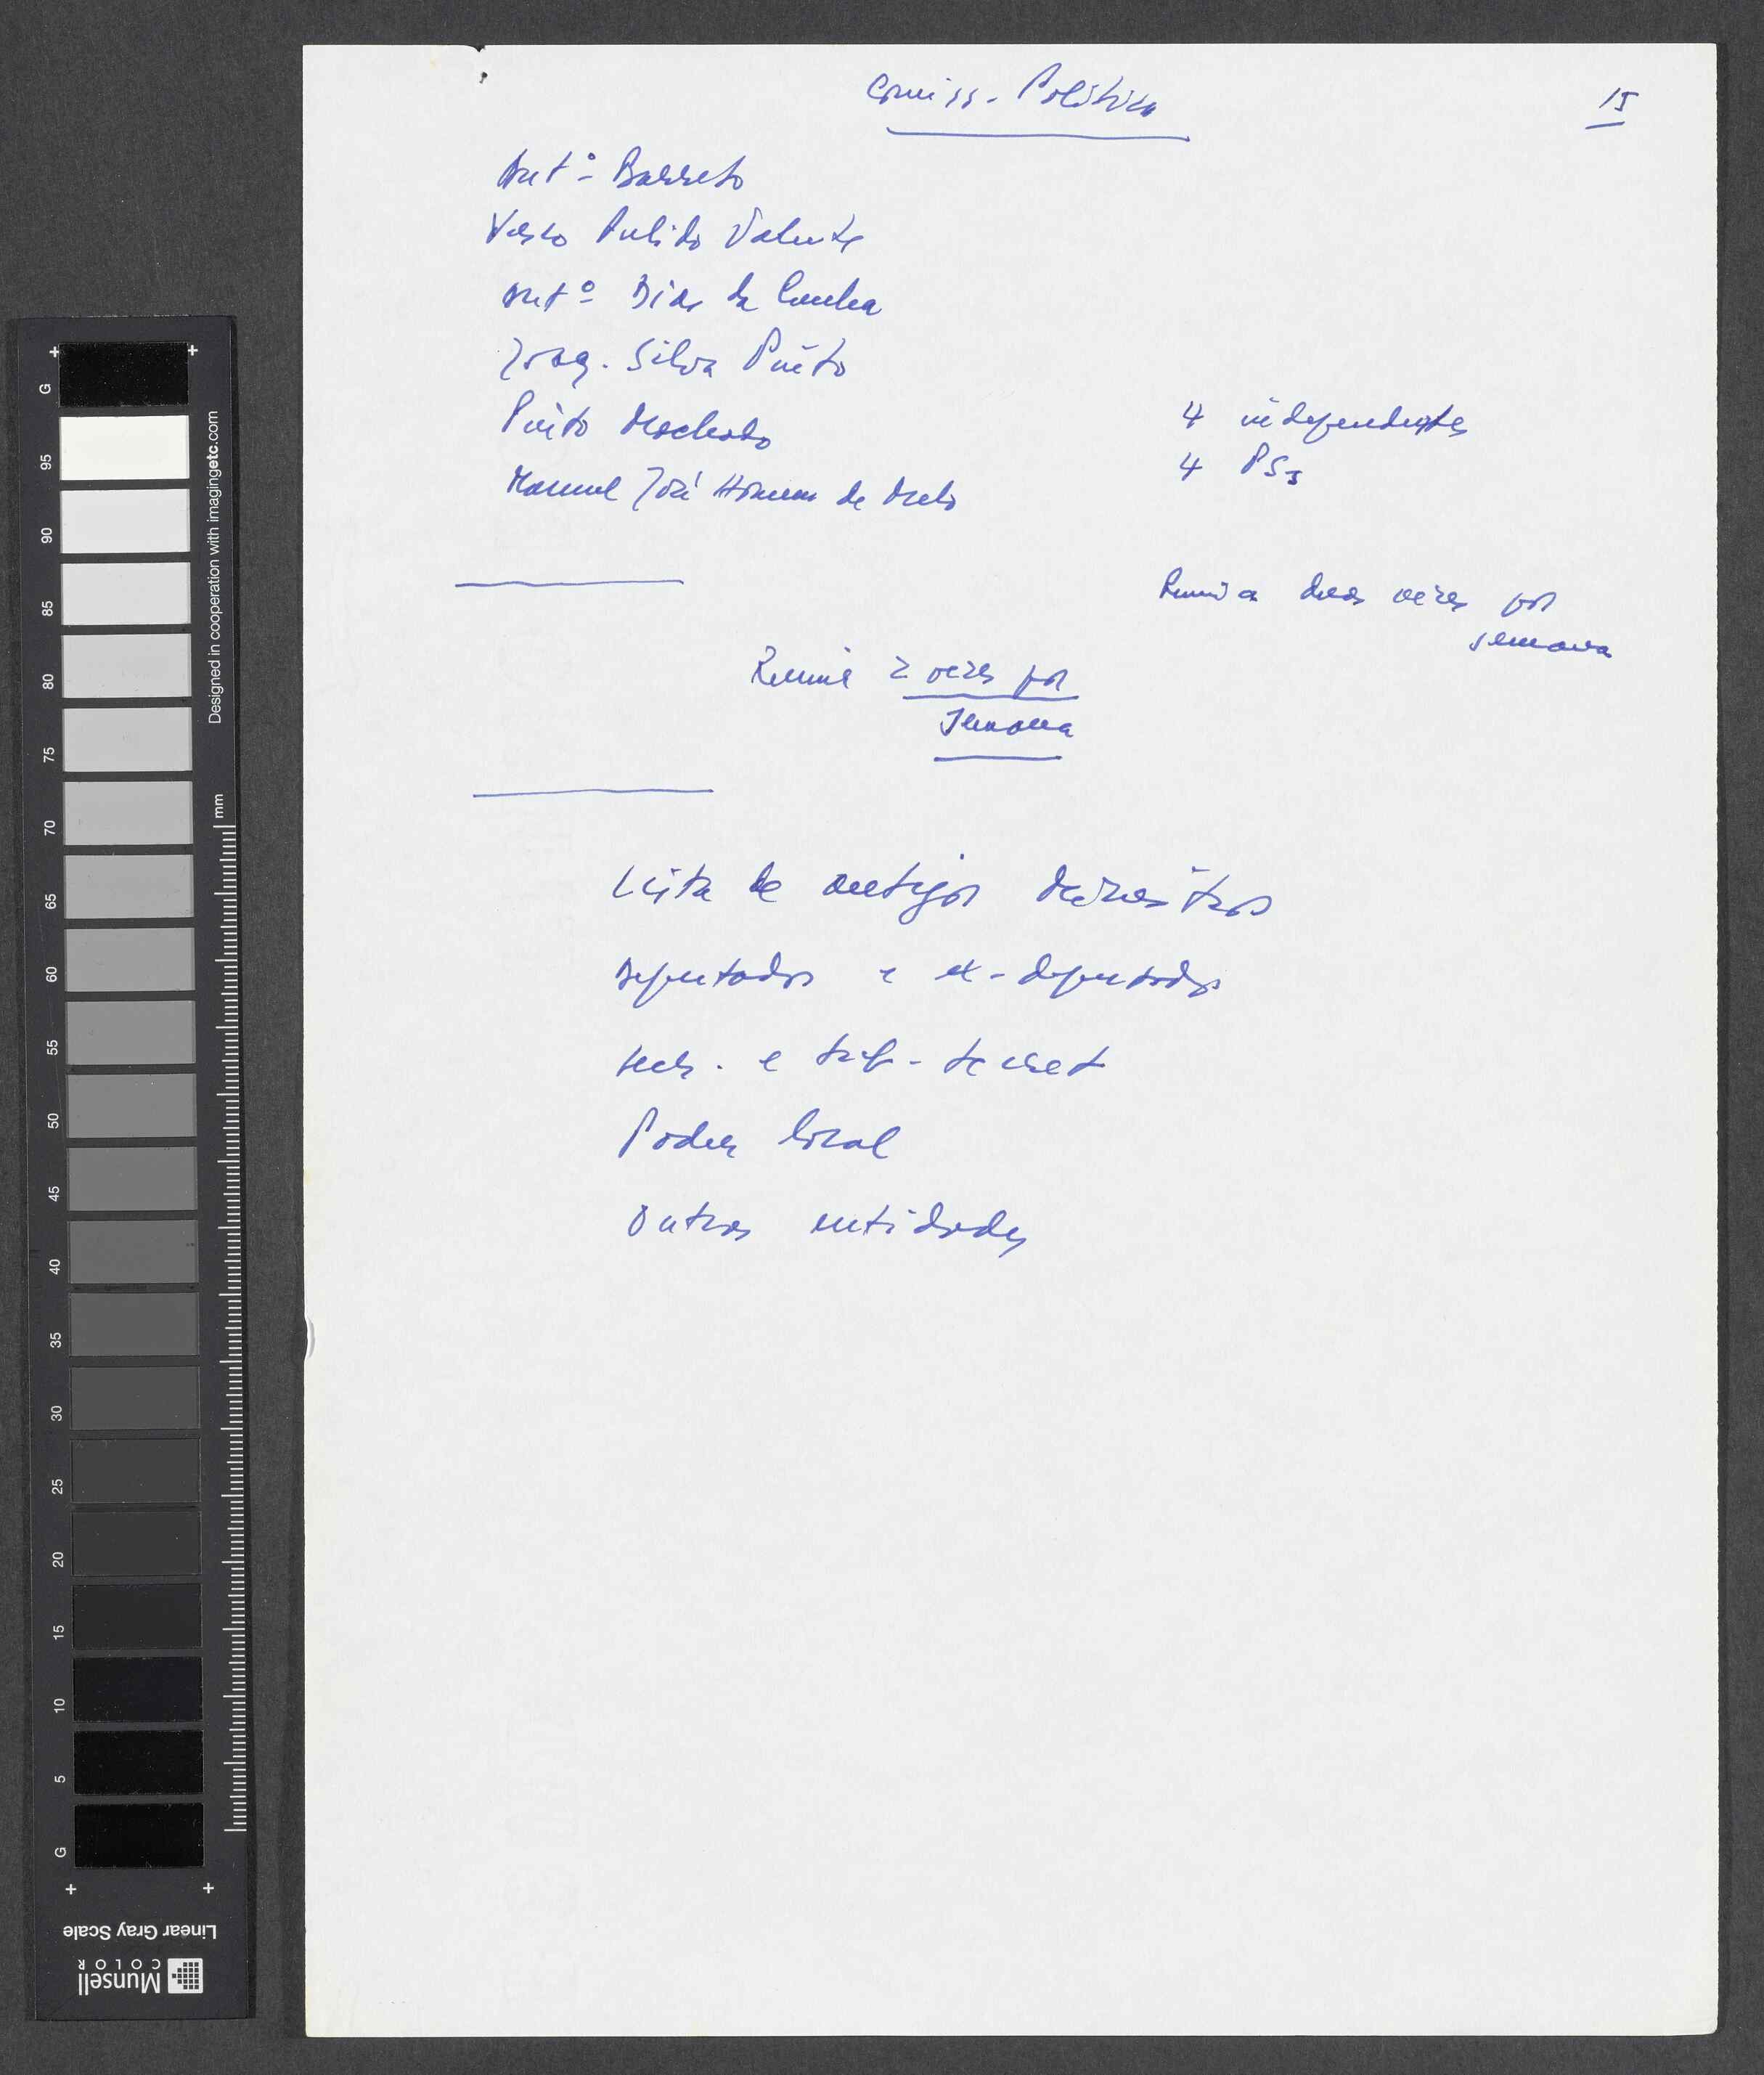 Comiss. Política
15
Antº Barreto
Vasco Pulido Valente
Antº Dias da Cunha
Joaq. Silva Pinto
Pinto Machado
Manuel José Homem de Melo
4 independentes
4 PSs
Reunia duas vezes por
semana
Reunia 2 vezes por
semana
Lista de antigos ministros
Deputados e ex-deputados
secr. e sub-secret
Poder local
Outras entidades
G
95
90
85
80
75
70
65
60
55
50
45
40
35
30
25
20
15
10
5
G
Designed in cooperation with imagingetc.com
mm
Linear Gray Scale
Munsell
COLOR